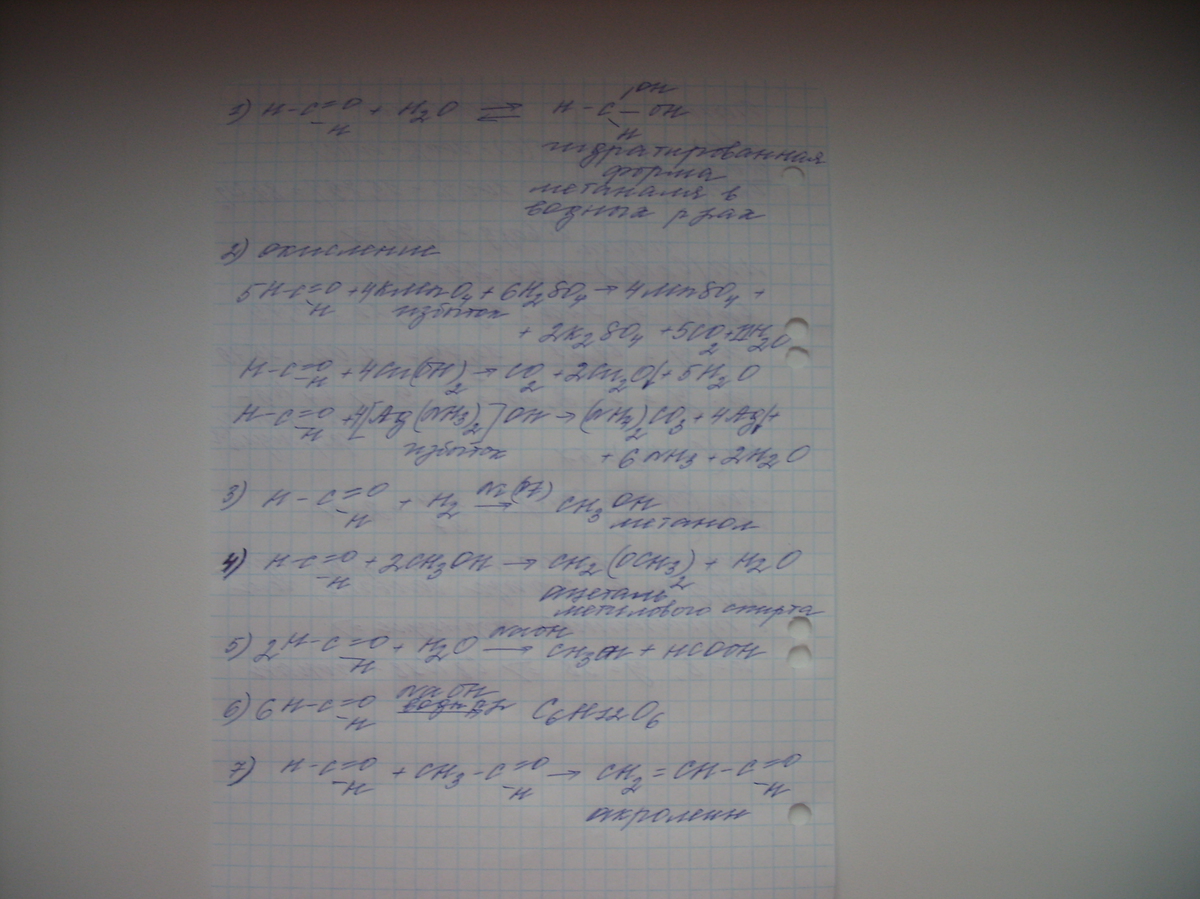 1) H-C=O + H2O ⇄ H-C-OH
-H
OH
H
гидратированная
форма
метаналя в
водных р-рах
2) окисление
5H-C=O + 4KMnO4 + 6H2SO4 → 4MnSO4 +
-H
избыток
+ 2K2SO4 + 5CO2 + 11H2O
H-C=O + 4Cu(OH)2 → CO2 + 2Cu2O↓ + 5H2O
-H
H-C=O + 4[Ag(NH3)2]OH → (NH4)2CO3 + 4Ag↓+
-H
избыток
+ 6NH3 + 2H2O
3) H-C=O + H2 → CH3OH
-H
метанол
4) H-C=O + 2CH3OH → CH2(OCH3)2 + H2O
-H
ацеталь
метилового спирта
NaOH
5) 2H-C=O + H2O → CH3OH + HCOOH
-H
NaOH
6) 6H-C=O C6H12O6
-H
7) H-C=O + CH3-C=O → CH2=CH-C=O
-H -H -H
акролеин